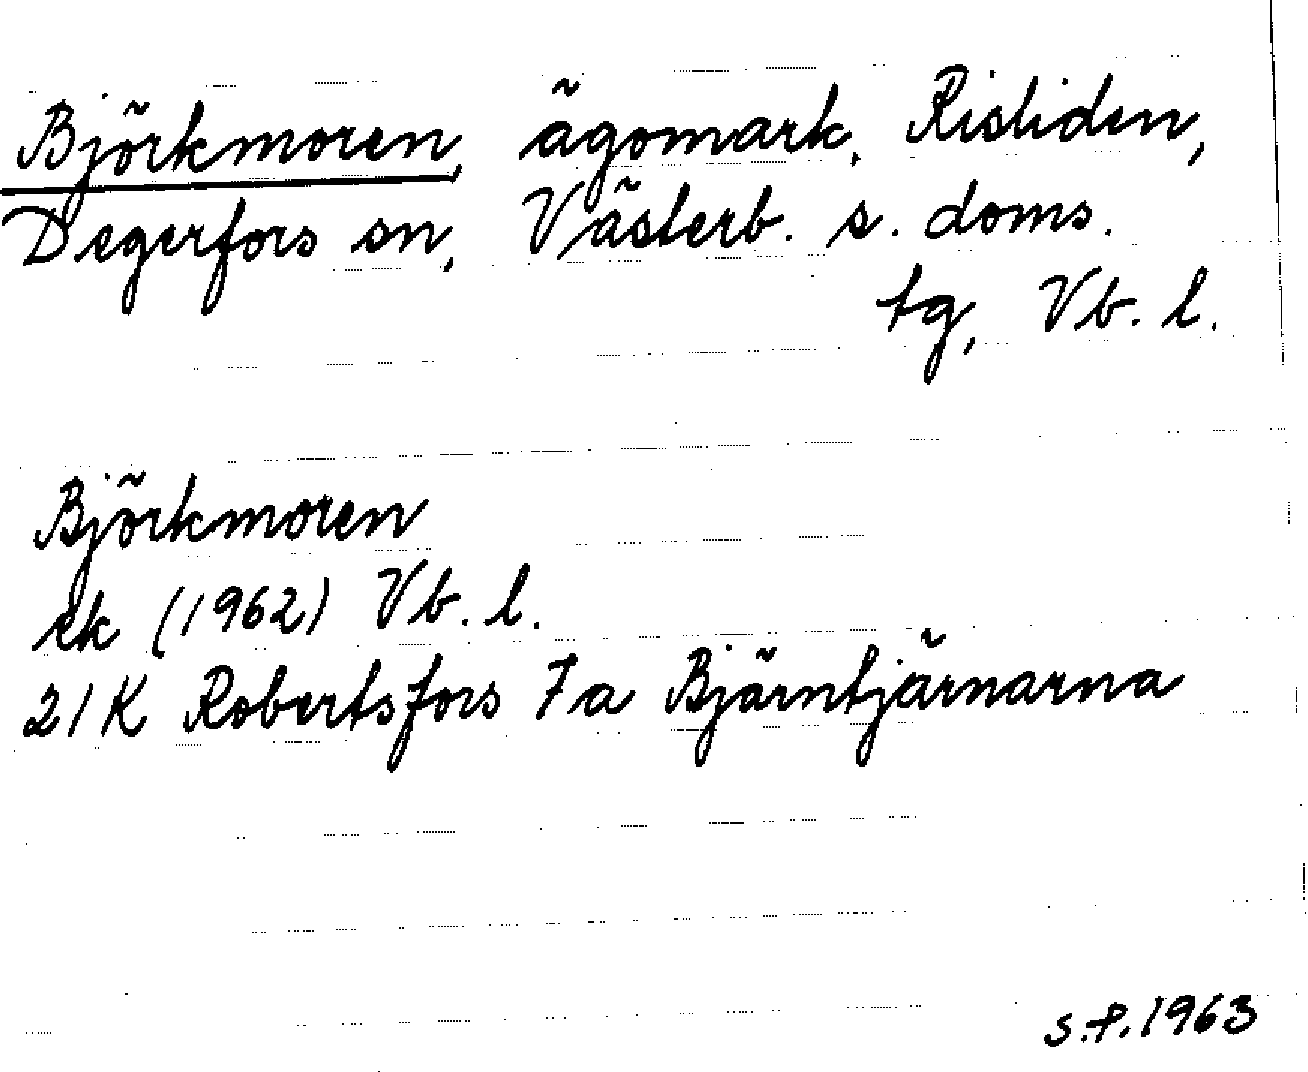 Björkmoren, ägomark, Risliden,
Degerfors sn, Västerb. s. doms.
tg, Vb. l.
Björkmoren
ek (1962) Vb. l.
21K Robertsfors 7a Björntjärnarna
s.f. 1963